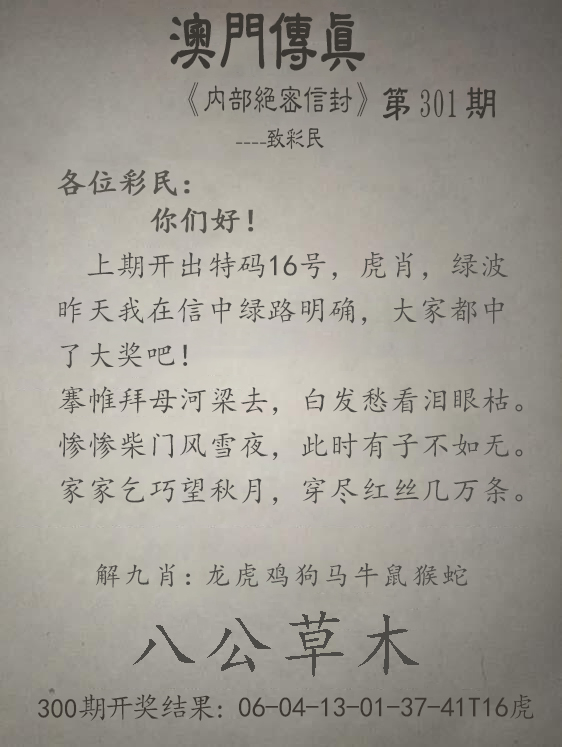 澳門傳眞
《内部絕密信封》第301期
----致彩民
各位彩民：
你们好！
上期开出特码16号，虎肖，绿波
昨天我在信中绿路明确，大家都中
了大奖吧！
搴帷拜母河梁去，白发愁看泪眼枯。
惨惨柴门风雪夜，此时有子不如无。
家家乞巧望秋月，穿尽红丝几万条。
解九肖：龙虎鸡狗马牛鼠猴蛇
八公草木
300期开奖结果：06-04-13-01-37-41T16虎